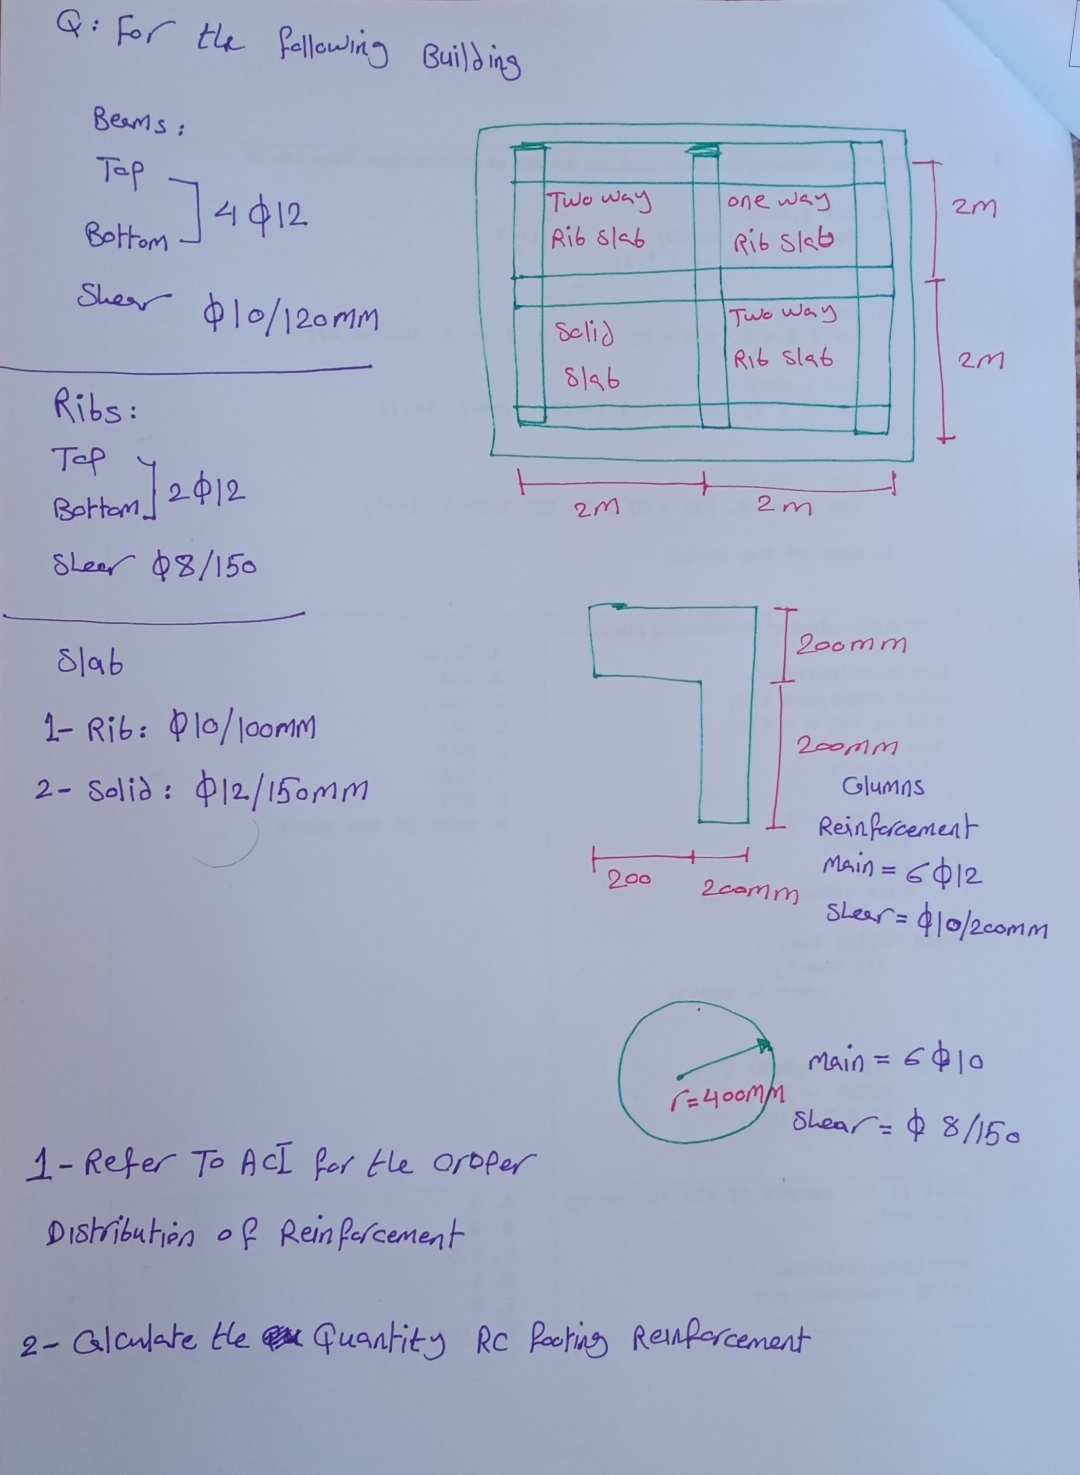 Q: For the following Building
Beams:
Top
Bottom
4 ϕ12
Shear ϕ10/120mm
Ribs:
Top
Bottom
2ϕ12
Shear ϕ8/150
Slab
1- Rib: ϕ10/100mm
2- Solid: ϕ12/150mm
Two way
Rib Slab
one way
Rib Slab
Solid
Slab
Two way
Rib Slab
2m
2m
2m
2m
200mm
200mm
200
200mm
Columns
Reinforcement
Main = 6ϕ12
Shear = ϕ10/200mm
r=400mm
Main = 6ϕ10
Shear = ϕ 8/150
1- Refer To ACI for the proper
Distribution of Reinforcement
2- Calculate the Quantity RC footing Reinforcement